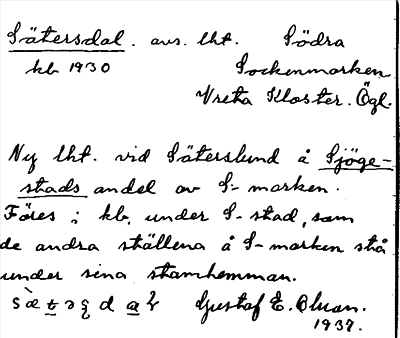 Sätersdal. avs. lht. Södra
kb 1930 Sockenmarken
Vreta Kloster. Ögl.
Ny lht. vid Säterslund å Sjöge-
stads andel av S-marken.
Föres i kb. under S-stad, som
de andra ställena å S-marken stå
under sina stamhemman.
Gustaf E. Olsson.
1937.